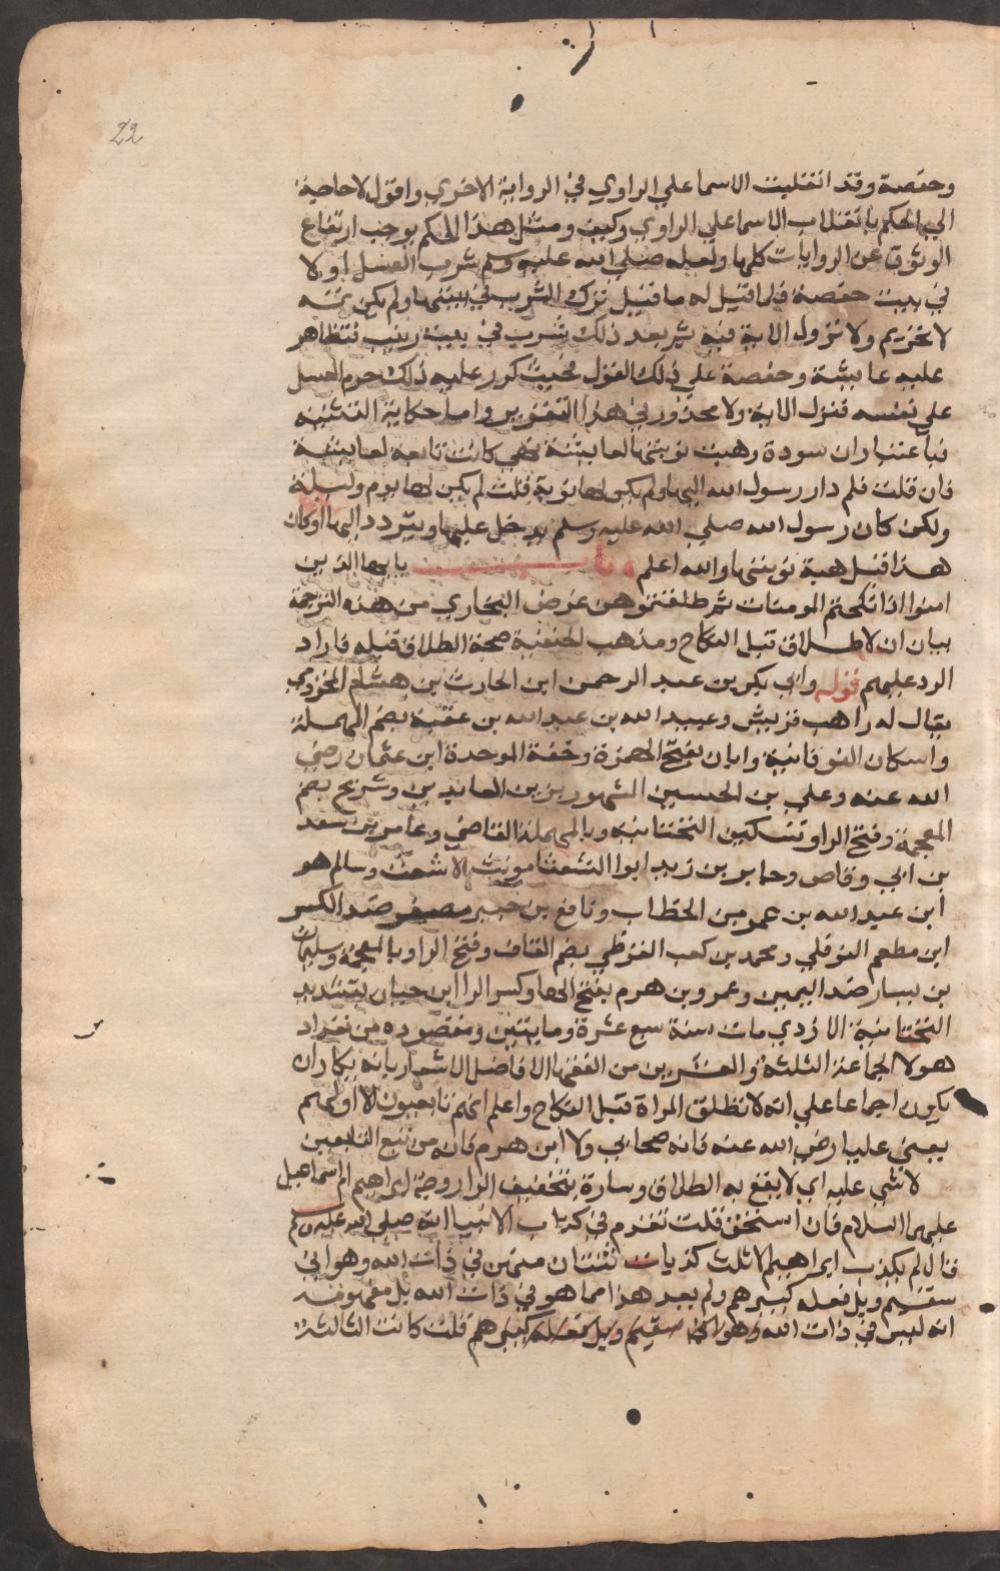 22
وحفصة وقد انقلبت الاسما علي الراوي في الرواية الاخري واقول لا حاجة
الي الحكم بانقلاب الاسما علي الراوي وكيف ومثل هذا الحكم يوجب ارتفاع
الوثوق عن الروايات كلها ولعله صلي الله عليه وسلم شرب العسل اولا
في بيت حفصة فلما قيل له ما قيل ترك الشرب في بيتها ولم يكن ثمه
لا تحريم ولا نزول الاية فيه ثم بعد ذلك شرب في بيت زينب فتظاهر
عليه عايشة وحفصة علي ذلك القول فحيث كرر عليه ذلك حرم العسل
علي نفسه فنزل الاية ولا محذور في هذا التقرير واما حكاية التثنيه
فباعتبار ان سودة وهبت نوبتها لعايشة فهي كانت تابعة لعايشة
فان قلت فلم دار رسول الله اليها ولم يكن لها نوبة قلت لم يكن لها يوم وليلة
ولكن كان رسول الله صلي الله عليه وسلم يدخل عليها ويتردد اليها او كان
هذا قبل هبة نوبتها والله اعلم باب يا يها الذين
امنوا اذا نكحتم المومنات ثم طلقتموهن غرض البخاري من هذه الترجمة
بيان ان لا طلاق قبل النكاح ومذهب الحنفية صحة الطلاق قبله فاراد
الرد عليهم قوله وابي بكر بن عبد الرحمن ابن الحارث بن هشام المخزومي
يقال له راهب قريش وعبيد الله بن عبد الله بن عتبة بضم المهملة
واسكان الفوقانية وابان بفتح الهمزة وخفة الموحدة ابن عثمان رضي
الله عنه وعلي بن الحسين المشهور بزين العابدين وشريح بضم
المعجمة وفتح الرا وتسكين التختانية وبالمهملة القاضي وعامر بن سعد
بن ابي وقاص وجابر بن زيد ابوا الشعثا مونث الاشعث وسالم هو
ابن عبد الله بن عمر بن الخطاب ونافع بن جبير مصغر ضد الكسر
ابن مطعم النوفلي ومحمد بن كعب القرظي بضم القاف وفتح الرا وبالمعجمة وسليمان
بن يسار ضد اليمين وعمرو بن هرم بفتح الها وكسر الرا ابن حيان بتشديد
التختانية الازدي مات سنة سبع عشرة ومايتين ومقصوده من تعداد
هولا الجماعة الثلثة والعشرين من الفقها الافاضل الاشعار بانه يكاد ان
يكون اجماعا علي انه لا تطلق المراة قبل النكاح واعلم انهم تابعيون الا اولهم
يعني عليا رضي الله عنه فانه صحابي ولا ابن هرم فانه من تبع التابعين
لا شي عليه اي لا يقع به الطلاق وسارة بتخفيف الرا زوجة ابراهيم ام اسماعيل
عليهما السلام فان استخق قلت تقدم في كتاب الانبيا انه صلي الله عليه وسلم
قال لم يكذب ابراهيم الا ثلث كذبات ثنتان منهن في ذات الله وهو اني
سقيم وبل فعله كبيرهم ولم يعد هذا مما هو في ذات الله بل مفهومه
انه ليس في ذات الله وهو اني سقيم وبل فعله كبيرهم قلت كانت الثالثة